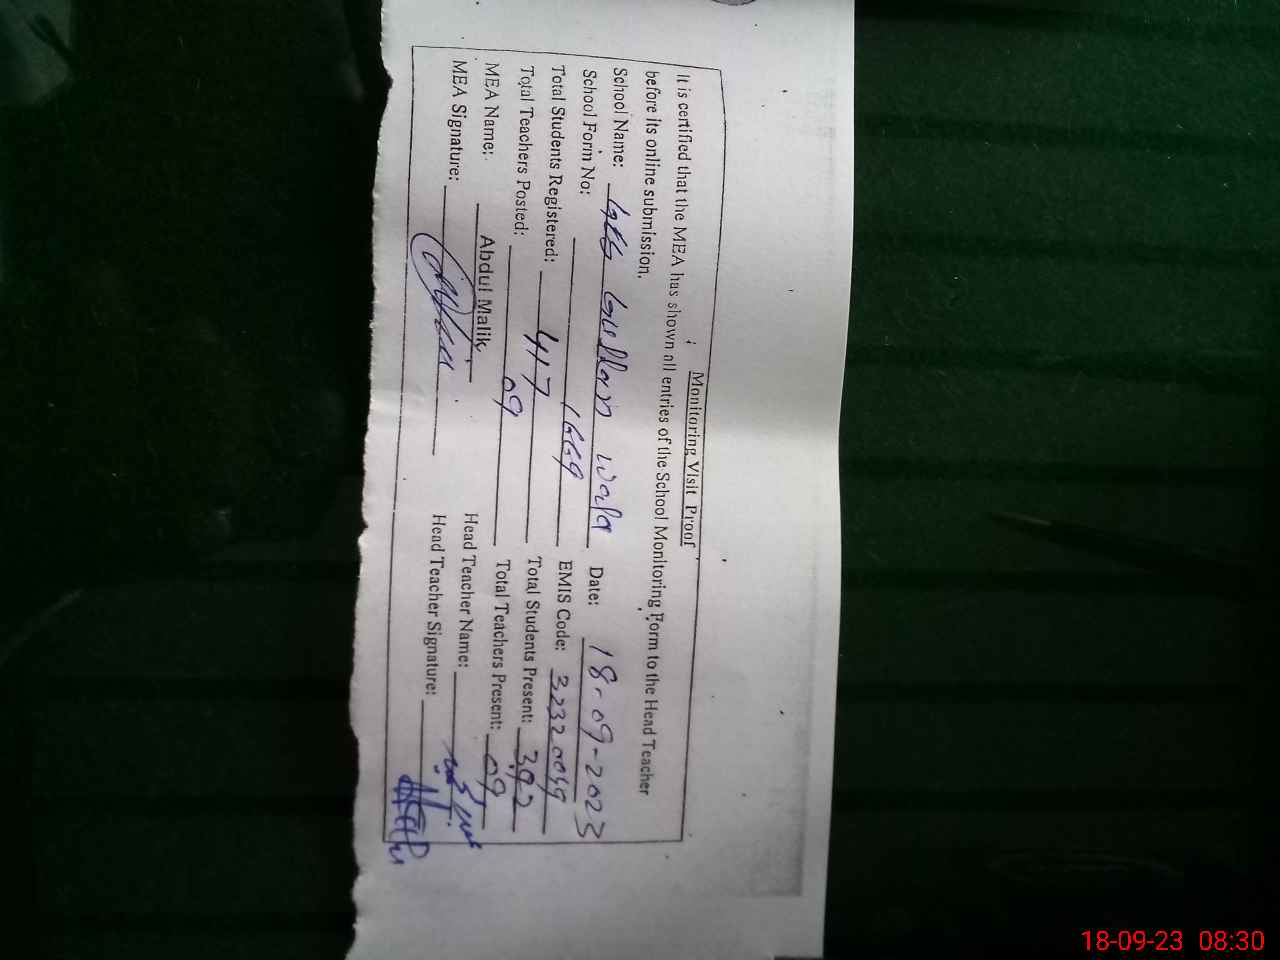 Monitoring Visit Proof
It is certified that the MEA has shown all entries of the School Monitoring Form to the Head Teacher
before its online submission.
School Name: GES Gullan wala Date: 18-09-2023
School Form No: 1669 EMIS Code: 32320049
Total Students Registered: 417 Total Students Present: 392
Total Teachers Posted: 09 Total Teachers Present: 09
MEA Name: Abdul Malik Head Teacher Name:
MEA Signature: Head Teacher Signature:
18-09-23 08:30